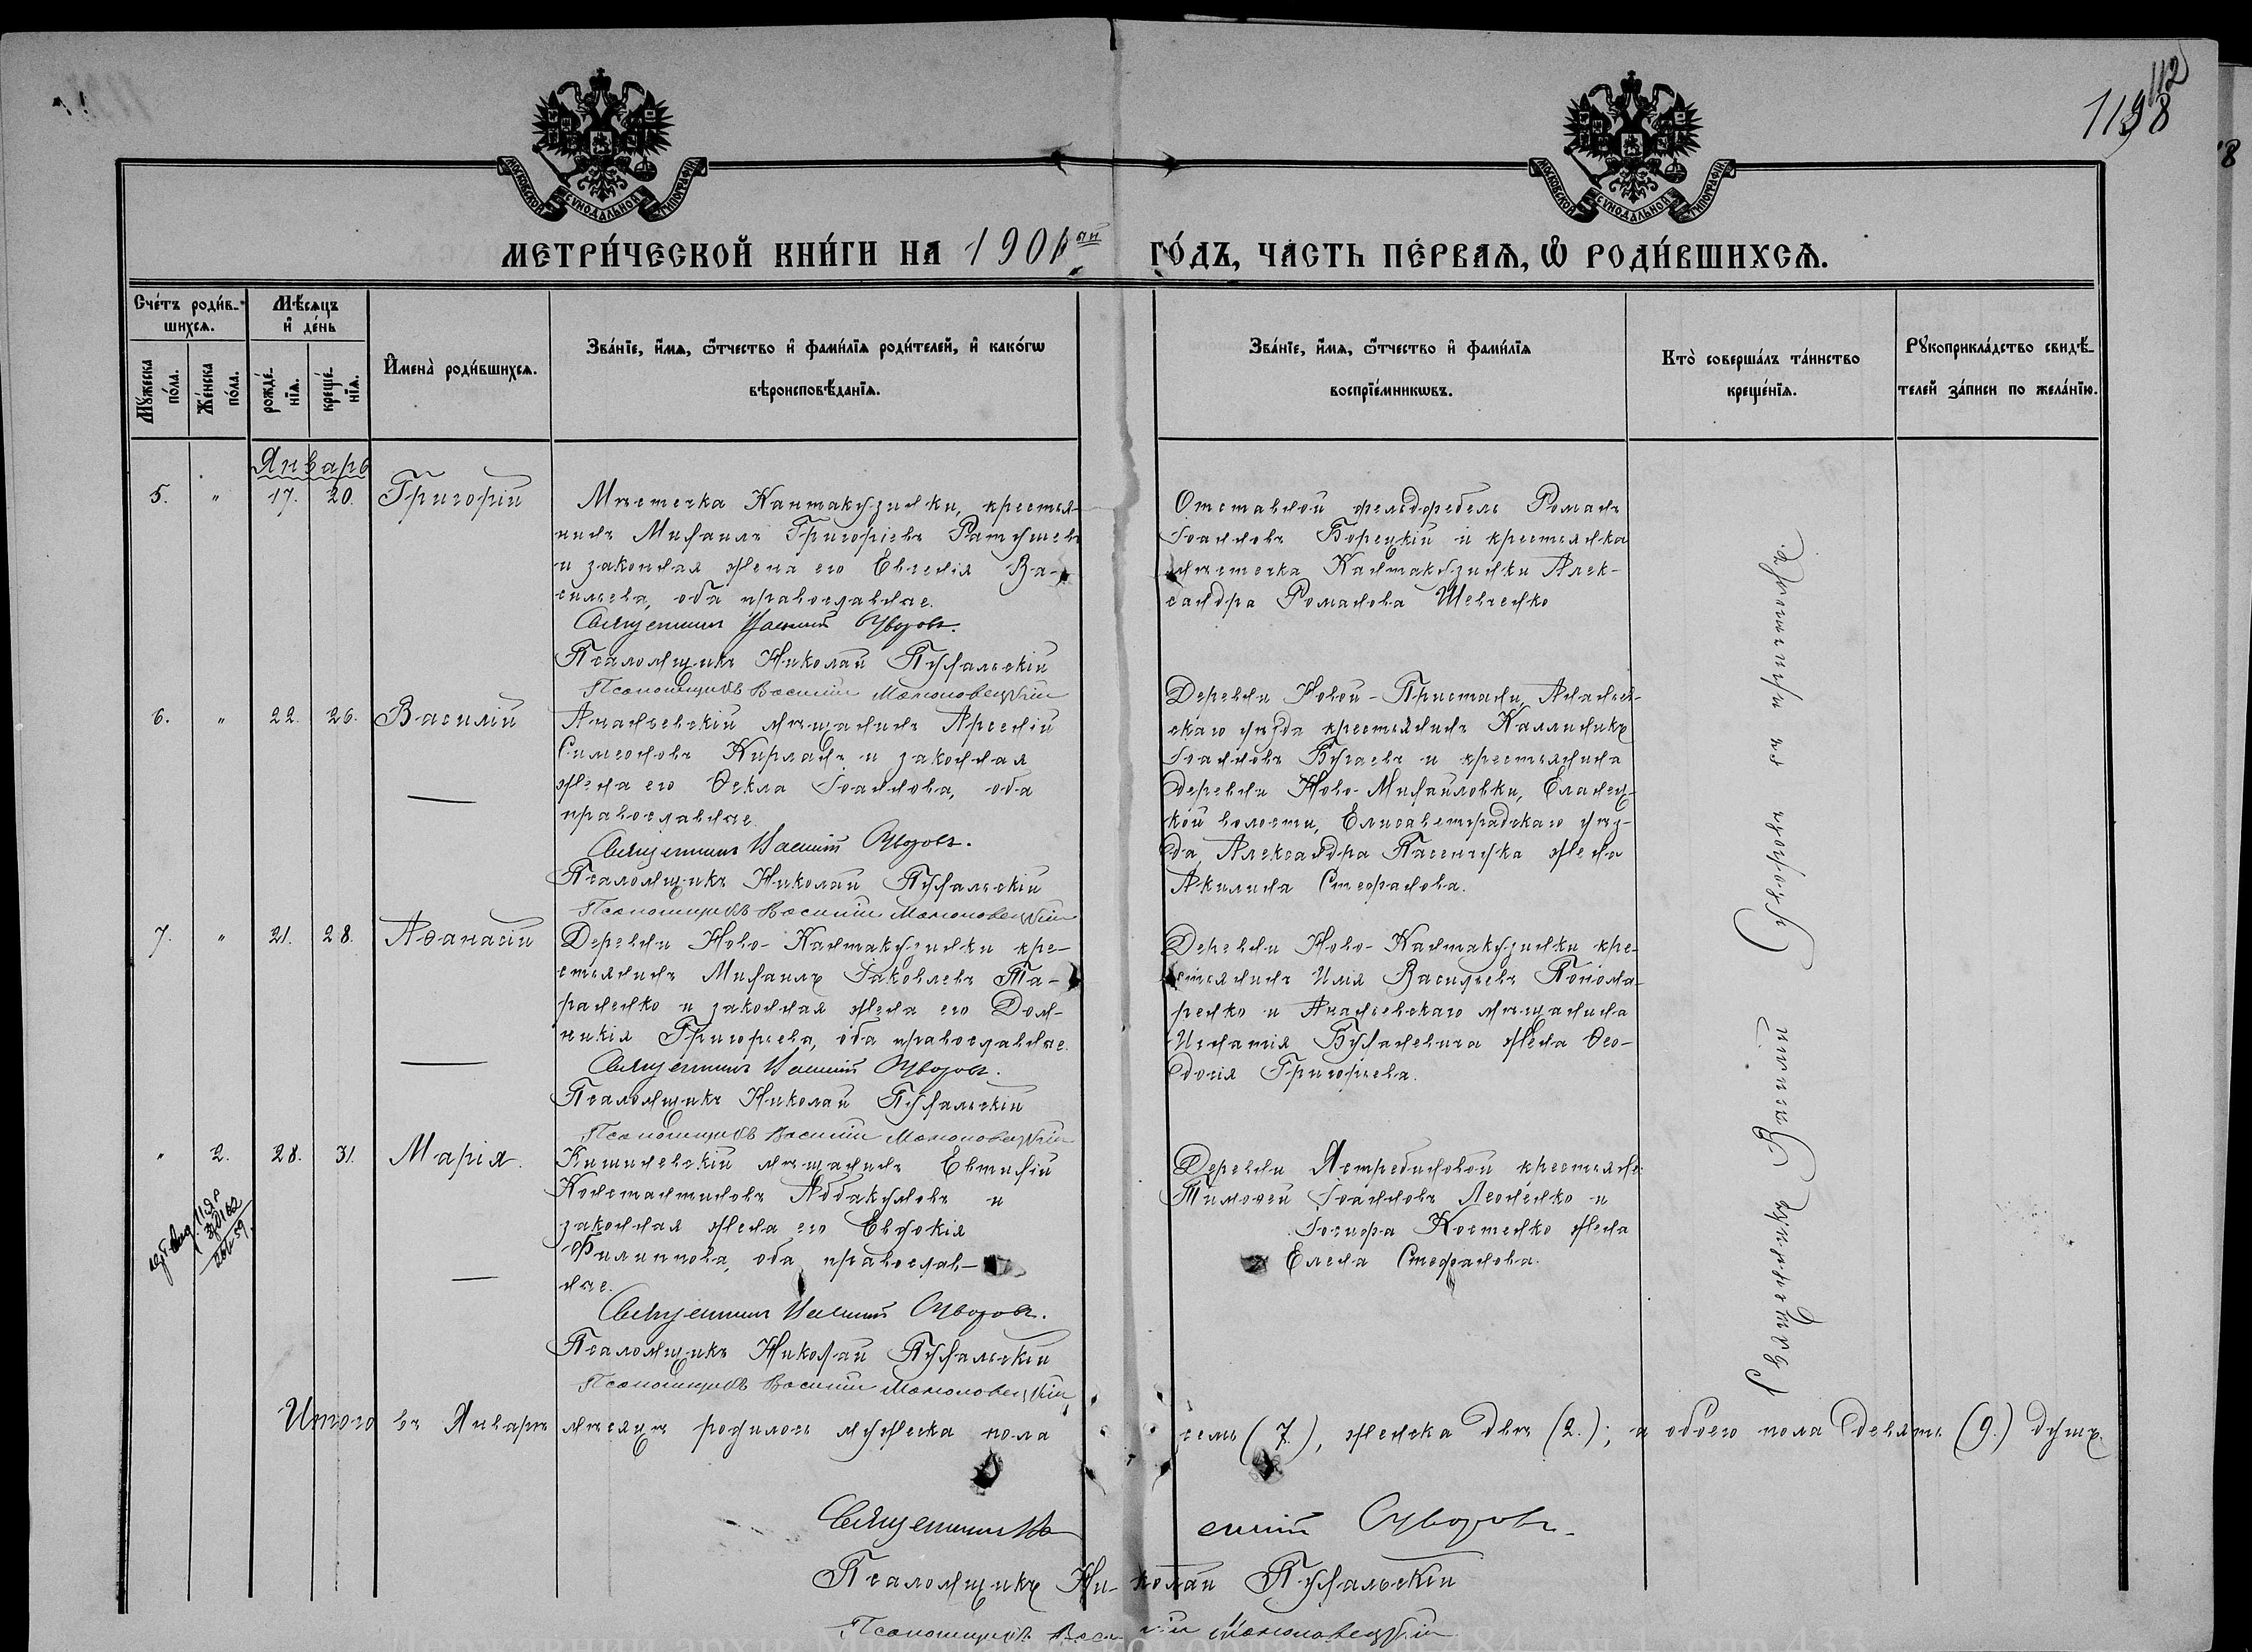 112
1198
МОСКОВСКОЙ СѴНОДАЛЬНОЙ ТИПОГРАФІИ
МОСКОВСКОЙ СѴНОДАЛЬНОЙ ТИПОГРАФІИ
МЕТРИ́ЧЕСКОЙ КНИ́ГИ НА 1901 ый ГО́ДЪ, ЧА́СТЬ ПЕ́РВАѦ, Ѡ РОДИ́ВШИХСѦ.
Сче́тъ роди́в-
шихсѧ.
Мѣ́сѧцъ
и҆ де́нь
Мꙋ́жеска по́ла.
Же́нска по́ла.
рожде́-
нїѧ.
креще́-
нїѧ.
И҆мена̀ роди́вшихсѧ.
Зва́нїе, и҆́мѧ, ѻ҆́тчество и҆ фами́лїѧ роди́телей, и҆ како́гѡ
вѣроисповѣ́данїѧ.
Зва́нїе, и҆́мѧ, ѻ҆́тчество и҆ фами́лїѧ
воспрїе́мникѡвъ.
Кто̀ соверша́лъ та́инство
креще́нїѧ.
Рꙋкоприкла́дство свидѣ́-
телей за́писи по жела́нїю.
Январь
5. " 17. 20. Григорій
Мѣстечка Кантакузинки, крестья-
нинъ Михаилъ Григоріевъ Ратушевъ
и законная жена его Евгенія Ва-
сильева, оба православные.
Священникъ Василій Суворовъ.
Псаломщикъ Николай Пухальскій
Псаломщикъ Василій
Отставной фельдфебель Романъ
Іоанновъ Борецкій и крестьянка
мѣстечка Кантакузинки Алек-
сандра Романова Шевченко
6. " 22. 26. Василій
Ананьевскій мѣщанинъ Арсеній
Симеоновъ Кирланъ и законная
жена его Ѳекла Іоаннова, оба
православные.
Священникъ Василій Суворовъ.
Псаломщикъ Николай Пухальскій
Псаломщикъ Василій
Деревни Новой-Пристани, Ананьев-
скаго уѣзда крестьянинъ Каллиникъ
Іоанновъ Бугаевъ и крестьянина
деревни Ново-Михайловки, Еланец-
кой волости, Елисаветградскаго уѣз-
да, Александра Пасечнука жена
Акилина Стефанова.
7. " 21. 28. Аѳанасій
Деревни Ново-Кантакузинки кре-
стьянинъ Михаилъ Іаковлевъ Та-
раненко и законная жена его Дом-
никія Григорьева, оба православные.
Священникъ Василій Суворовъ.
Псаломщикъ Николай Пухальскій
Псаломщикъ Василій
Деревни Ново-Кантакузинки кре-
стьянинъ Илія Васильевъ Понома-
ренко и Ананьевскаго мѣщанина
Игнатія Буханевича жена Ѳео-
досія Григорьева.
" 2. 28. 31. Марія.
Кишиневскій мѣщанинъ Евтихій
Константиновъ Аббакумовъ и
законная жена его Евдокія
Филиппова, оба православ-
ные.
Священникъ Василій Суворовъ.
Псаломщикъ Николай Пухальскій
Псаломщикъ Василій
Деревни Ястребиновой крестьяне
Тимоѳей Іоанновъ Леоненко и
Іосифа Костенко жена
Елена Стефанова.
Священникъ Василій Суворовъ съ псаломщикомъ.
Итого въ Январѣ мѣсяцѣ родилось мужеска пола семь (7.), женска двѣ (2.); а обоего пола девять (9.) душъ.
Священникъ Василій Суворовъ.
Псаломщикъ Николай Пухальскій
Псаломщикъ Василій